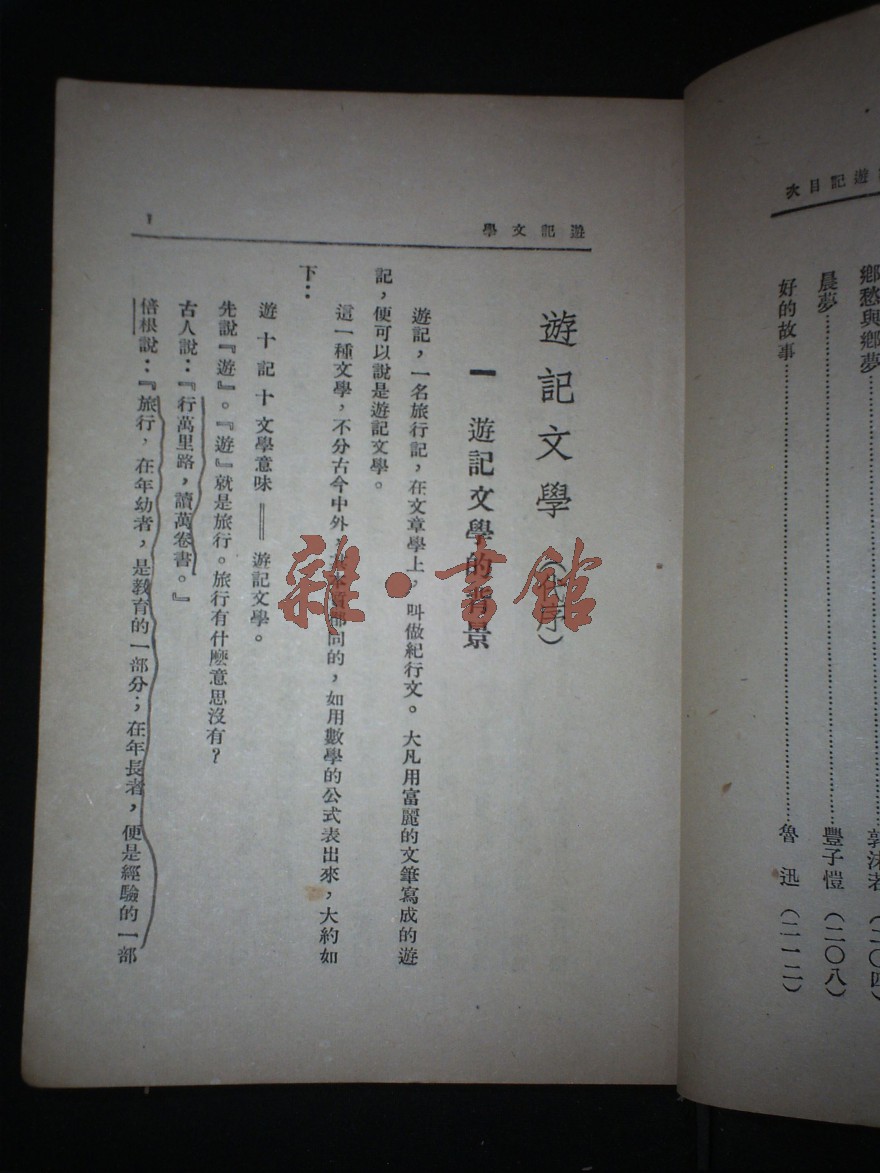 遊記目次
鄉愁與鄉夢……郭沫若(二〇四)
晨夢……豐子愷(二〇八)
好的故事……魯迅(二一二)
遊記文學
1
遊記文學(序)
一 遊記文學的背景
遊記,一名旅行記,在文章學上,叫做紀行文。大凡用富麗的文筆寫成的遊
記,便可以說是遊記文學。
這一種文學,不分古今中外,都同的,如用數學的公式表出來,大約如
下:
遊十記十文學意味═遊記文學。
先說『遊』。『遊』就是旅行。旅行有什麼意思沒有?
古人說:『行萬里路,讀萬卷書。』
倍根說:『旅行,在年幼者,是教育的一部分;在年長者,便是經驗的一部
雜·書館